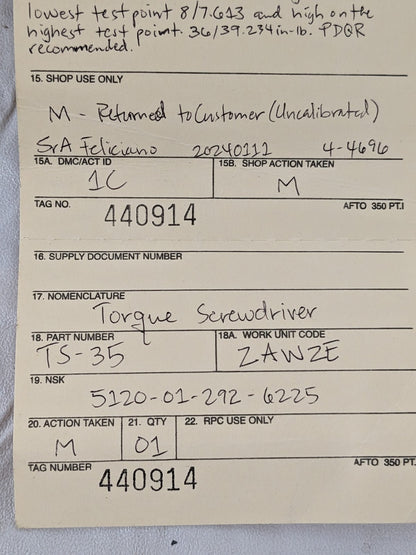 lowest test point 8/7.613 and high on the
highest test point. 36/39.234 in-lb. PDQR
recommended.
15. SHOP USE ONLY
M - Returned to Customer (Uncalibrated)
SrA Feliciano 20240111 4-4696
15A. DMC/ACT ID
15B. SHOP ACTION TAKEN
1C
M
TAG NO. 440914 AFTO 350 PT.I
16. SUPPLY DOCUMENT NUMBER
17. NOMENCLATURE
Torque Screwdriver
18. PART NUMBER
18A. WORK UNIT CODE
TS-35
ZAWZE
19. NSK
5120-01-292-6225
20. ACTION TAKEN
21. QTY
22. RPC USE ONLY
M
01
TAG NUMBER 440914 AFTO 350 PT.